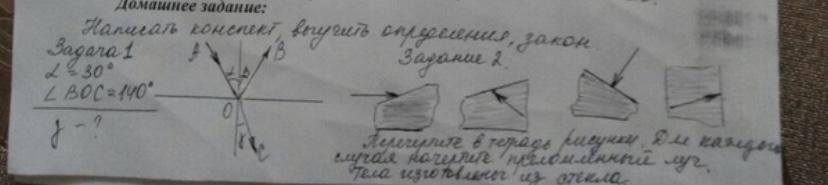 Домашнее задание:
Написать конспект, выучить определения, закон.
Задача 1
∠ = 30°
∠ BOC = 140°
γ - ?
A
B
∠
β
O
γ
C
Задание 2.
Перечертите в тетрадь рисунки. Для каждого
случая начертите преломленный луч.
Тела изготовлены из стекла